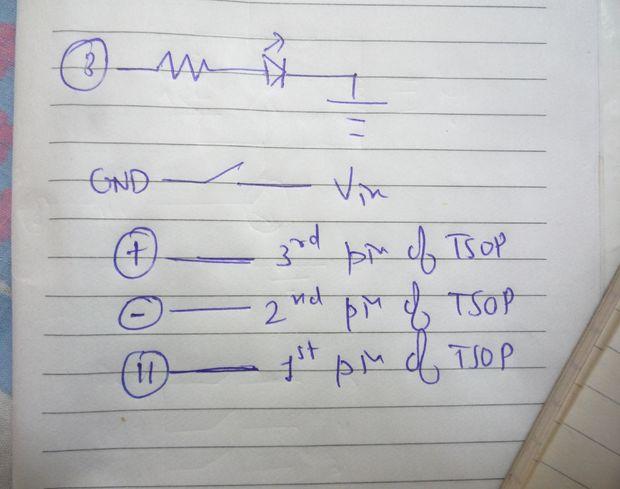 3
GND Vin
+ 3rd pin of TSOP
- 2nd pin of TSOP
11 1st pin of TSOP